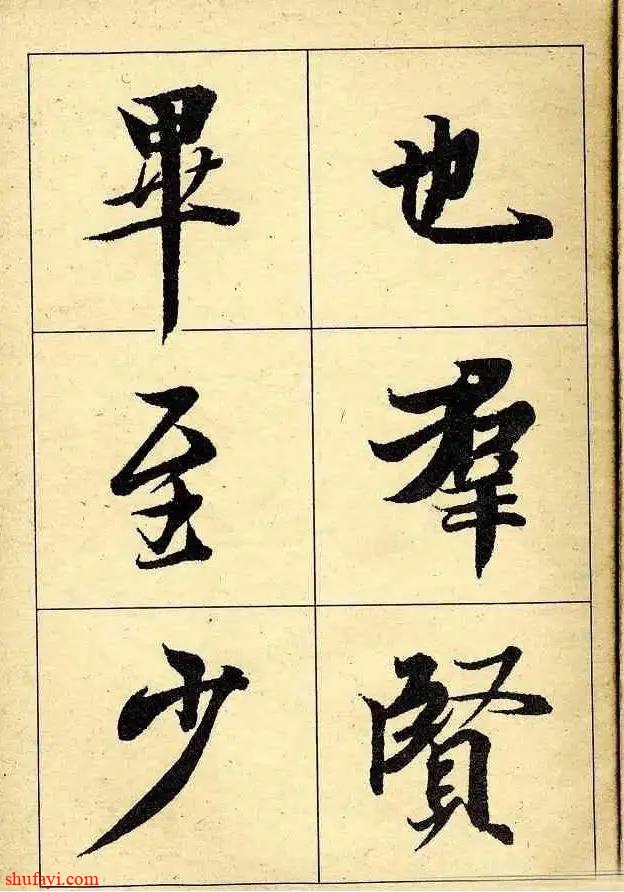 也羣賢
畢至少
shufayi.com